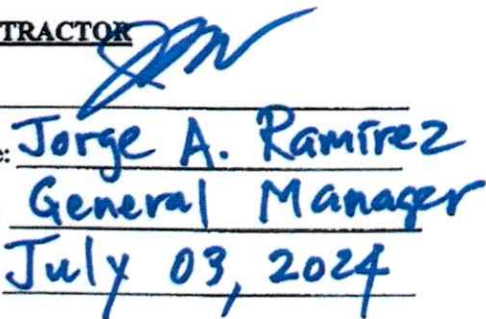 TRACTOR
e: Jorge A. Ramirez
General Manager
July 03, 2024